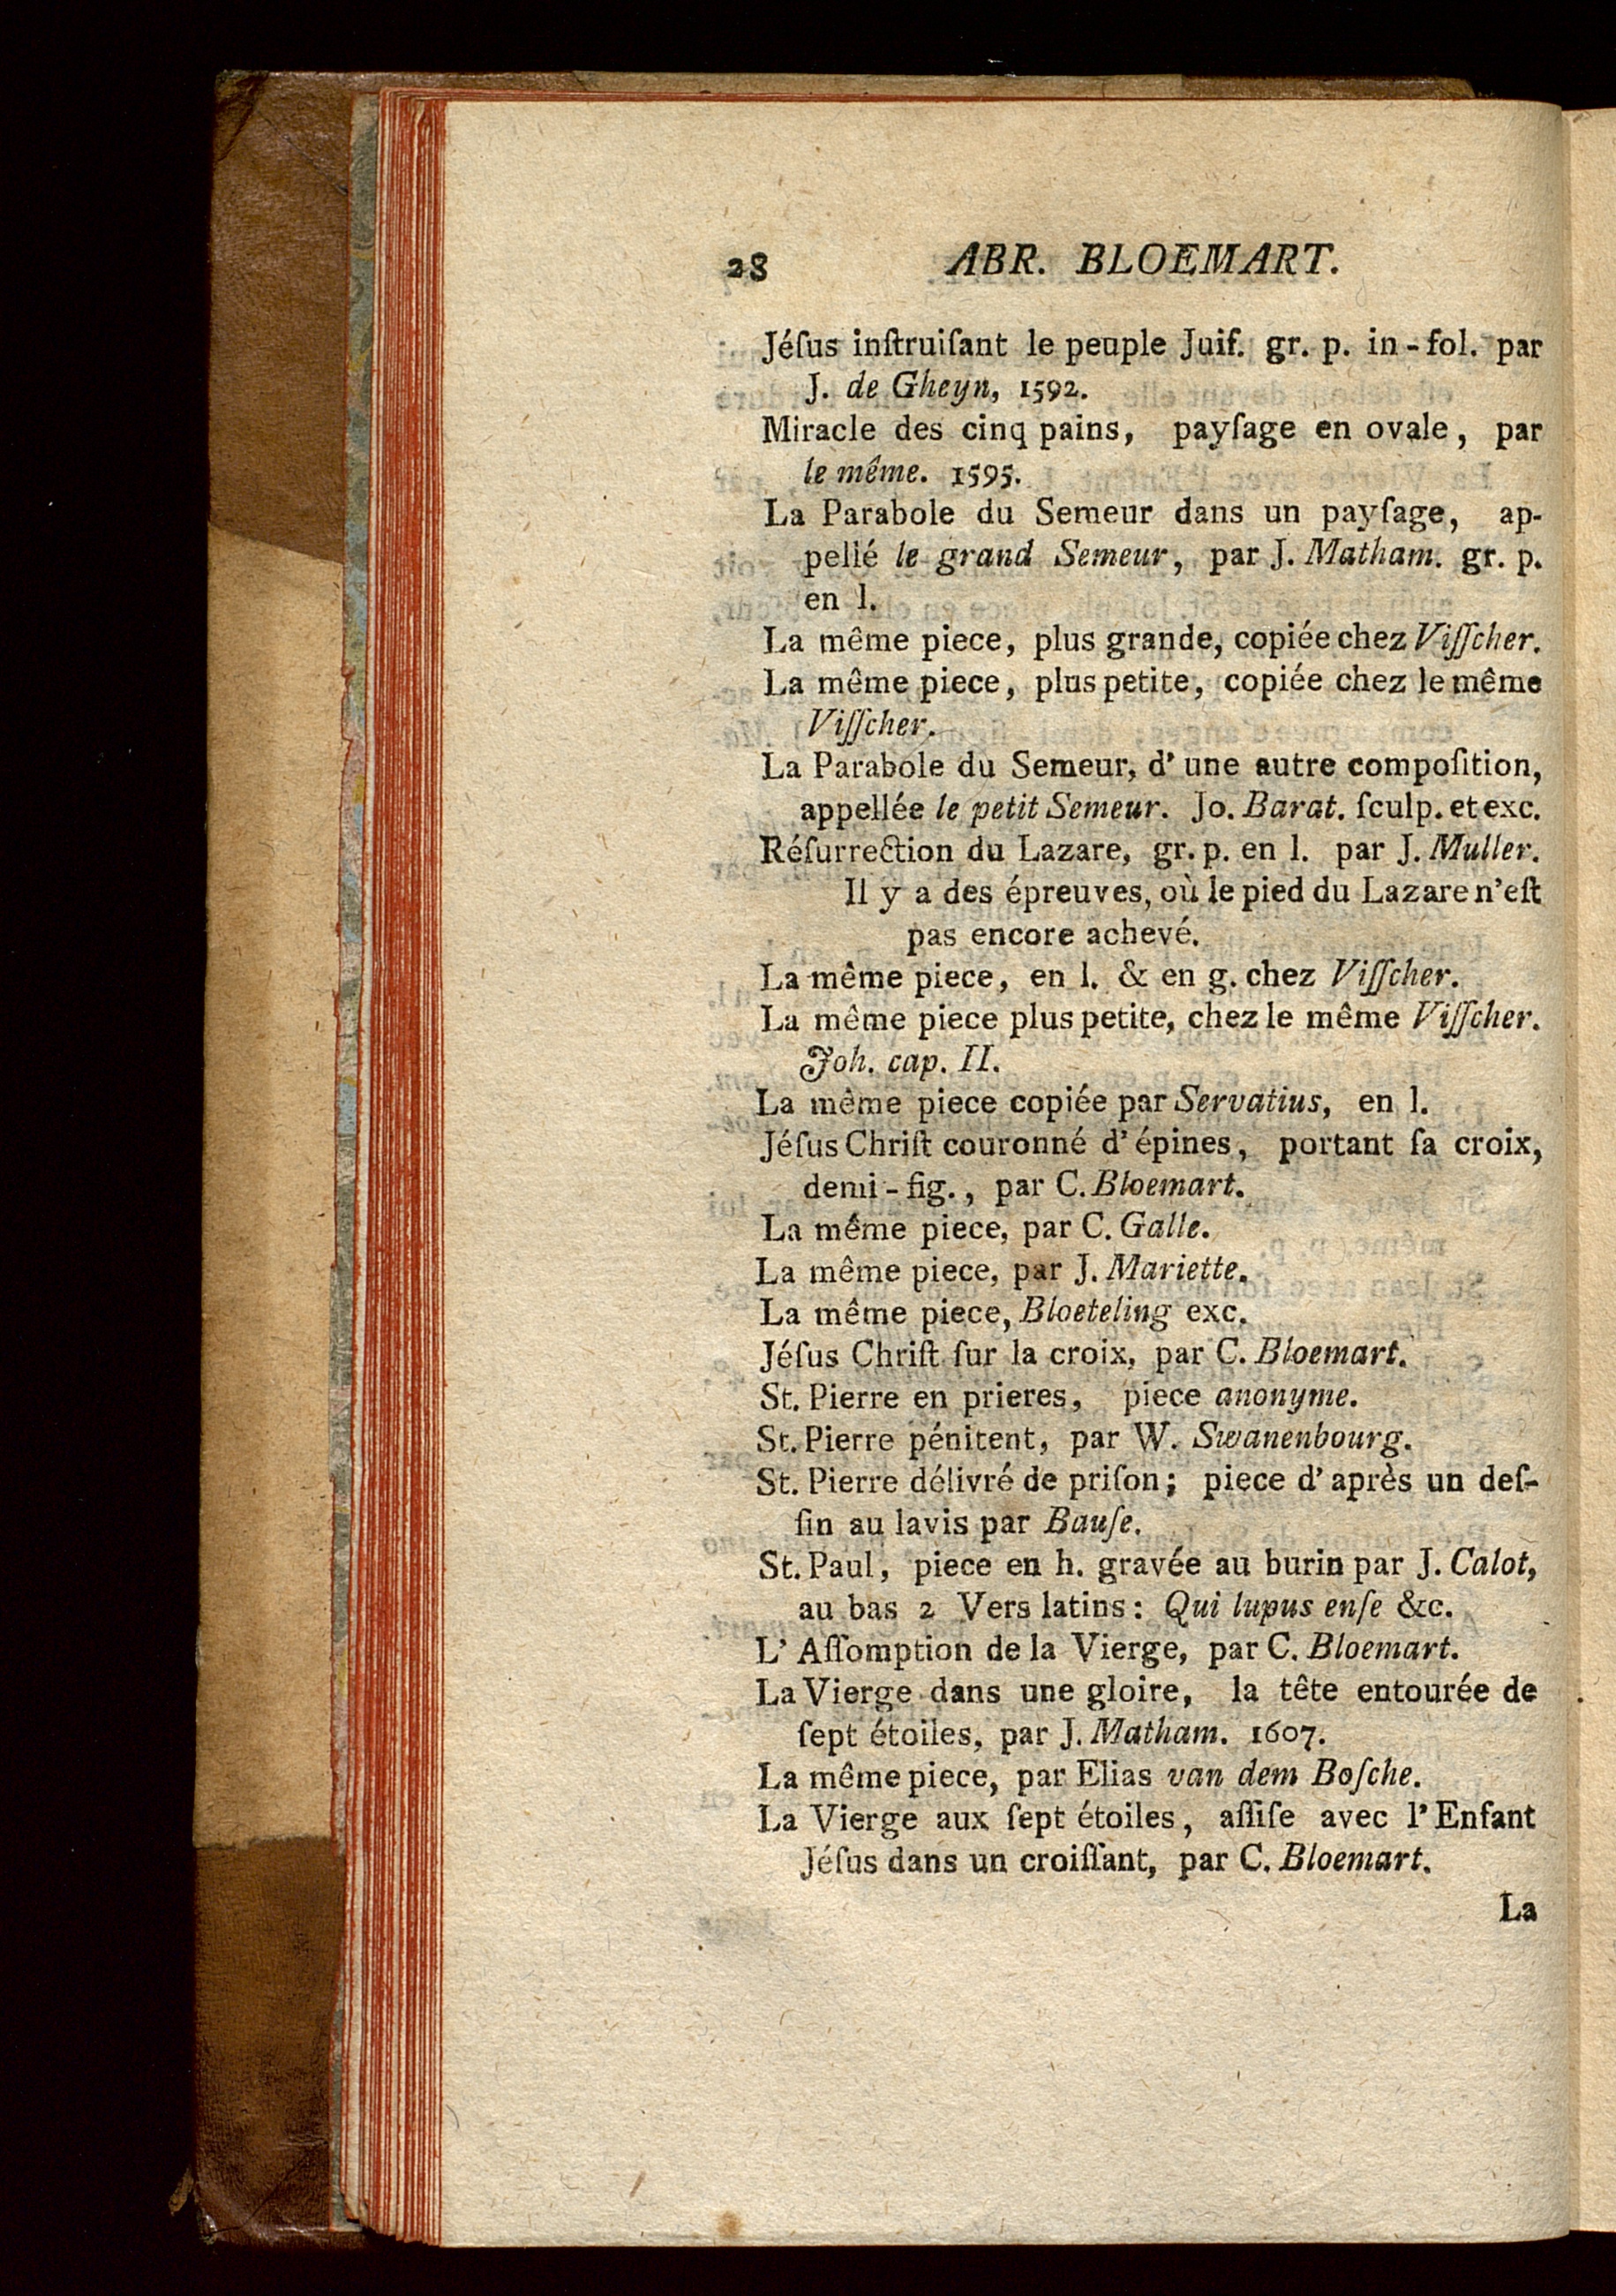 28 ABR. BLOEMART.
Jéſus inſtruiſant le peuple Juif. gr. p. in-fol. par
J. de Gheyn, 1592.
Miracle des cinq pains, payſage en ovale, par
le même. 1595.
La Parabole du Semeur dans un payſage, ap-
pellé le grand Semeur, par J. Matham. gr. p.
en l.
La même piece, plus grande, copiée chez Viſſcher.
La même piece, plus petite, copiée chez le même
Viſſcher.
La Parabole du Semeur, d'une autre compoſition,
appellée le petit Semeur. Jo. Barat. ſculp. et exc.
Réſurrection du Lazare, gr. p. en l. par J. Muller.
Il y a des épreuves, où le pied du Lazare n'eſt
pas encore achevé.
La même piece, en l. & en g. chez Viſſcher.
La même piece plus petite, chez le même Viſſcher.
Joh. cap. II.
La même piece copiée par Servatius, en l.
Jéſus Chriſt couronné d'épines, portant ſa croix,
demi-fig., par C. Bloemart.
La même piece, par C. Galle.
La même piece, par J. Mariette.
La même piece, Bloeteling exc.
Jéſus Chriſt ſur la croix, par C. Bloemart.
St. Pierre en prieres, piece anonyme.
St. Pierre pénitent, par W. Swanenbourg.
St. Pierre délivré de priſon; piece d'après un deſ-
ſin au lavis par Bauſe.
St. Paul, piece en h. gravée au burin par J. Calot,
au bas 2 Vers latins: Qui lupus enſe &c.
L'Aſſomption de la Vierge, par C. Bloemart.
La Vierge dans une gloire, la tête entourée de
ſept étoiles, par J. Matham. 1607.
La même piece, par Elias van dem Boſche.
La Vierge aux ſept étoiles, aſſiſe avec l'Enfant
Jéſus dans un croiſſant, par C. Bloemart.
La